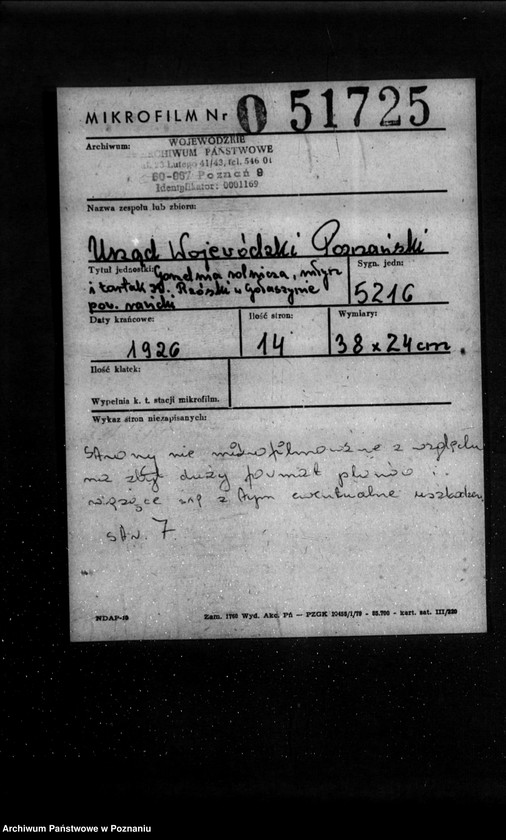 MIKROFILM Nr 0 51725
Archiwum:
WOJEWÓDZKIE
ARCHIWUM PAŃSTWOWE
23 Lutego 41/43, tel. 546 01
60-967 Poznań 9
Identyfikator: 0001169
Nazwa zespołu lub zbioru:
Urząd Wojewódzki Poznański
Tytuł jedostki: Gorzelnia rolnicza, młyn
i tartak
w Golaszynie
pow.
Sygn. jedn:
5216
Daty krańcowe:
1926
Ilość stron:
14
Wymiary:
38 x 24 cm.
Ilość klatek:
Wypełnia k. t. stacji mikrofilm.
Wykaz stron niezapisanych:
Strony nie mikrofilmowane z względu
na zbyt duży format planów i
wiążące się z tym ewentualne uszkodzen.
str. 7
NDAP-18
Zam. 1768 Wyd. Akc. Pń — PZGK 10458/I/79 - 35.700 - kart. sat. III/220
Archiwum Państwowe w Poznaniu